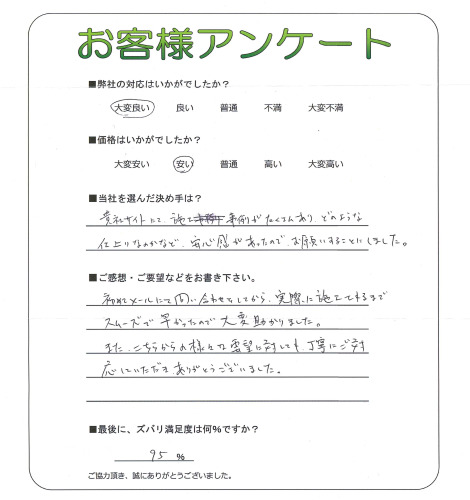 お客様アンケート
■弊社の対応はいかがでしたか?
大変良い 良い 普通 不満 大変不満
■価格はいかがでしたか?
大変安い 安い 普通 高い 大変高い
■当社を選んだ決め手は?
貴社サイトにて、施工事例がたくさんあり、どのような
仕上りなのかなど、安心感があったので、お願いすることにしました。
■ご感想・ご要望などをお書き下さい。
初めてメールにて問い合わせをしてから、実際に施工するまで
スムーズで早かったので大変助かりました。
また、こちらからの様々な要望に対しても、丁寧にご対
応いただきありがとうございました。
■最後に、ズバリ満足度は何%ですか?
95 %
ご協力頂き、誠にありがとうございました。